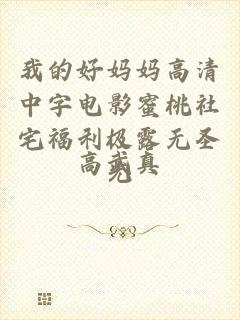 我的好妈妈高清
中字电影蜜桃社
宅福利极露无圣
高真